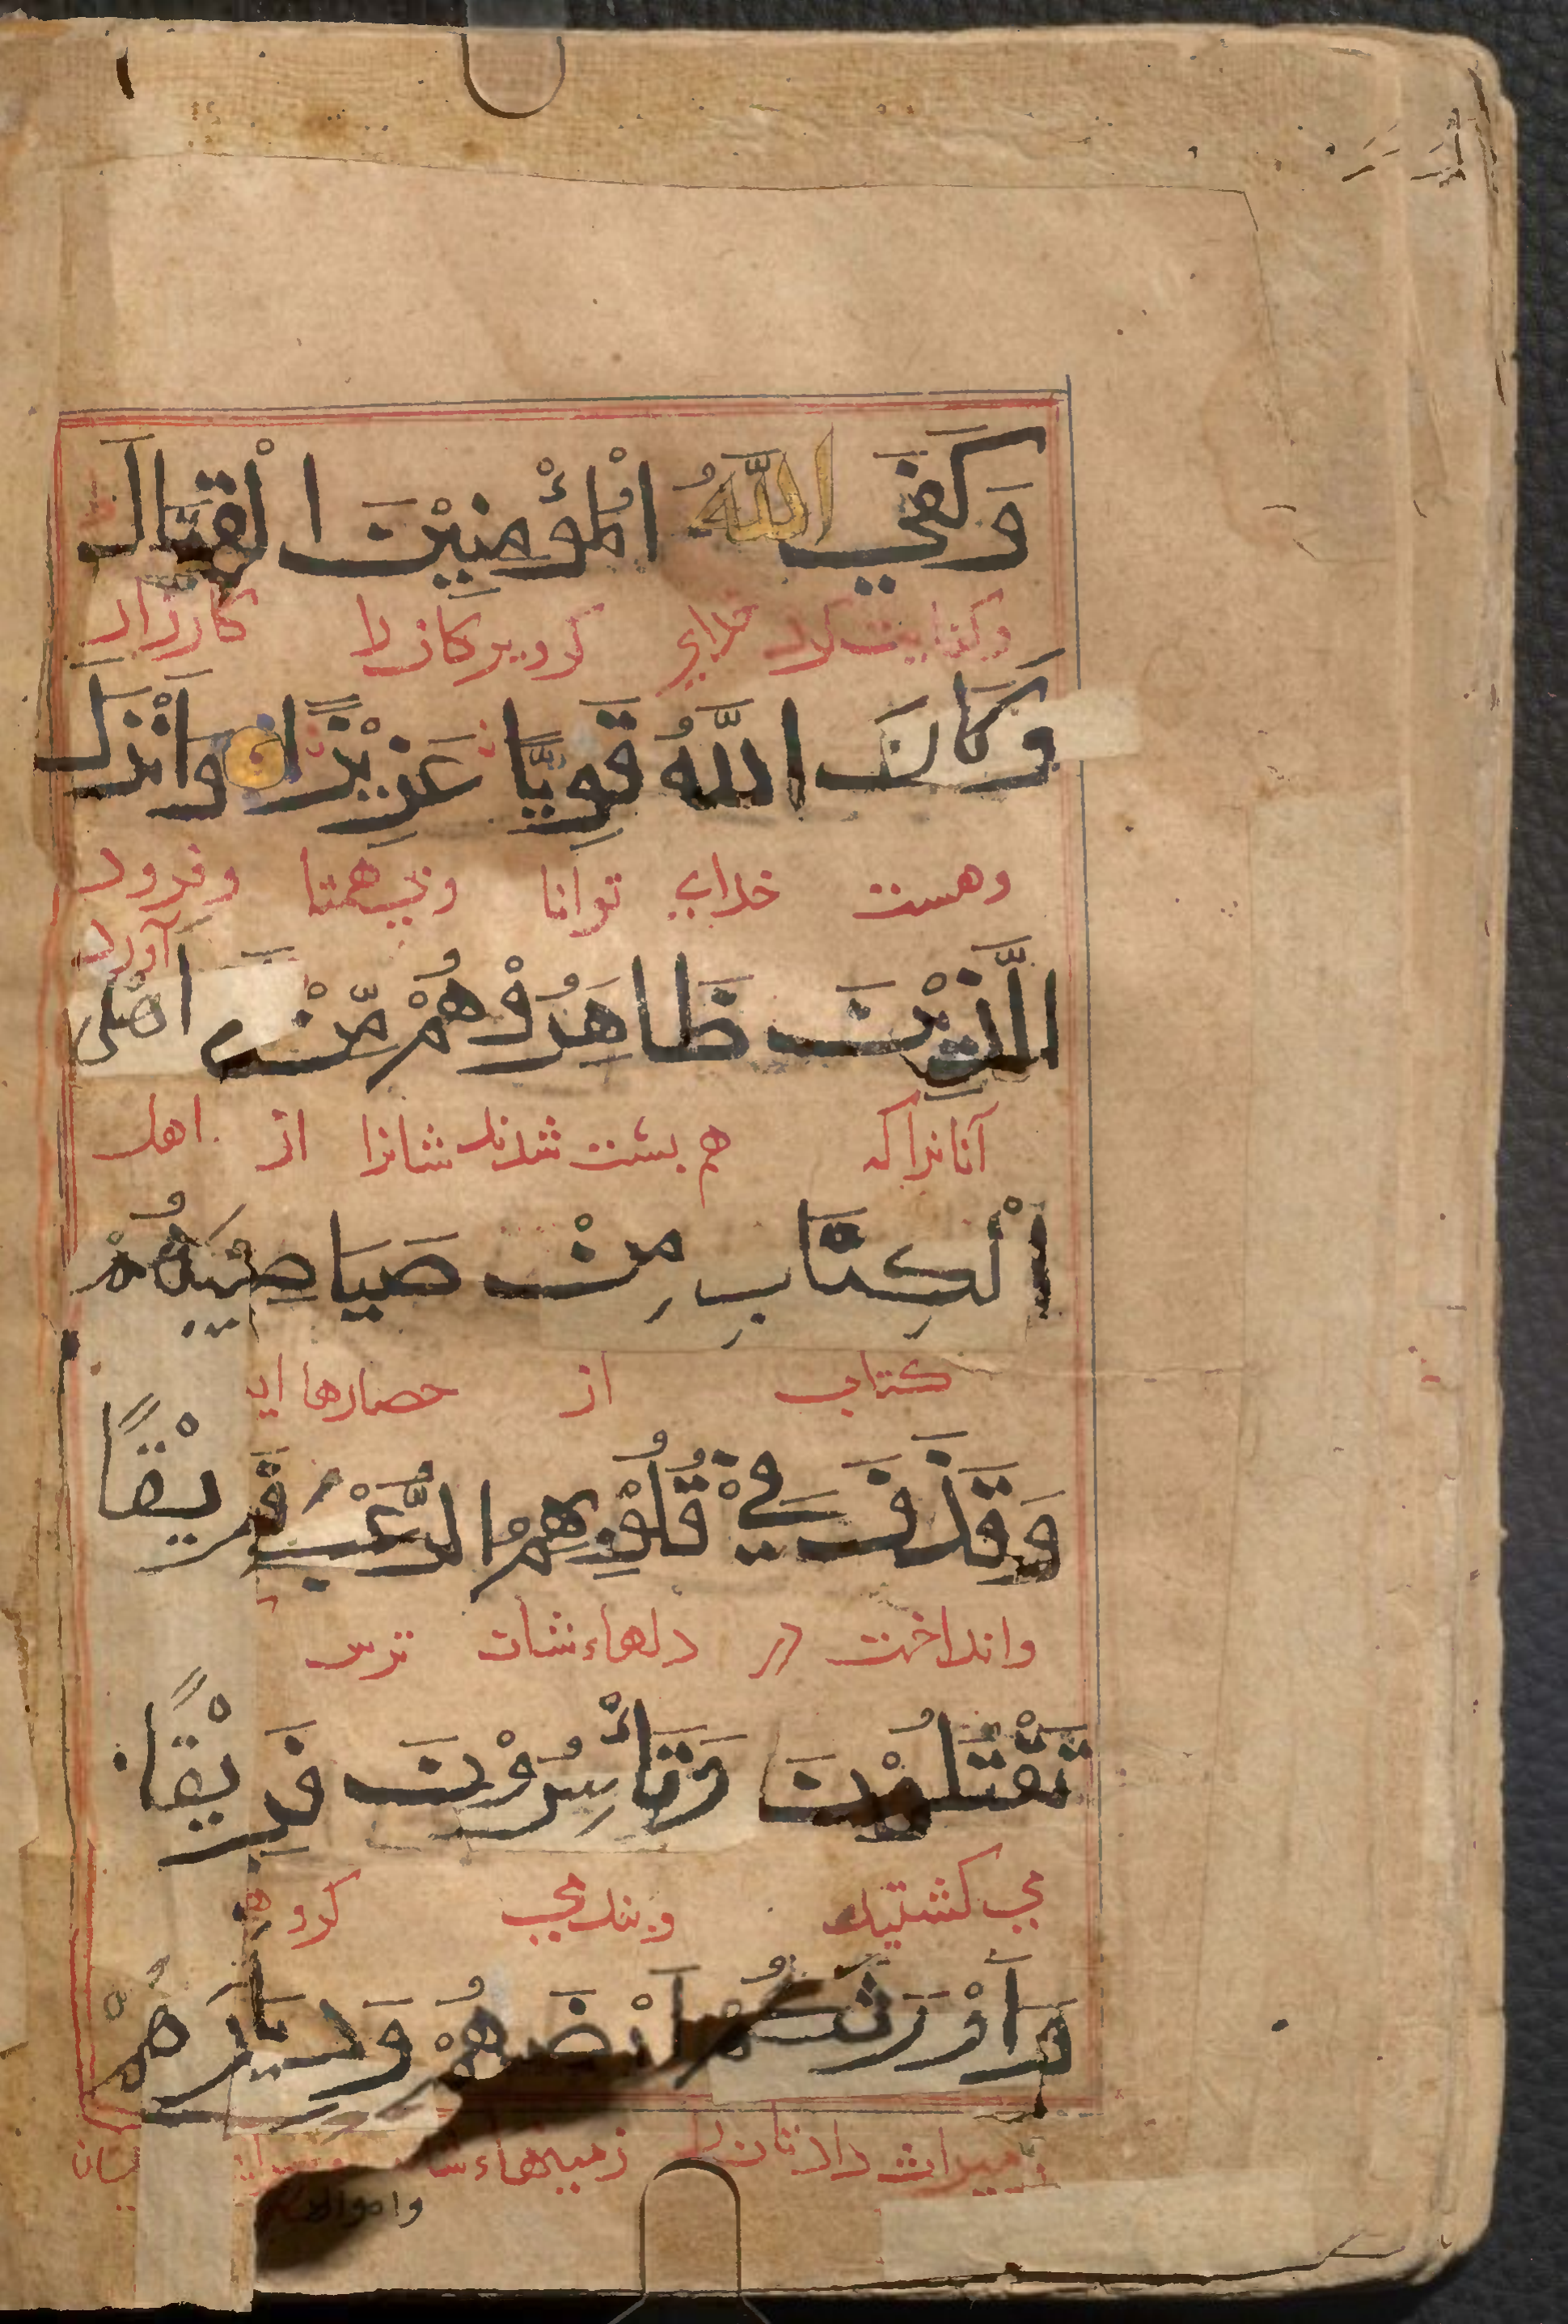 وَكَفَي اللّٰهُ الْمُؤْمِنِيْنَ الْقِتَالَ
وكفایت کرد خدای کرویدکانرا کارزار
وَكَانَ اللَّهُ قَوِيًّا عَزِيْزًا وَأَنْزَلَ
وهست خدای توانا وبی همتا وفرود
آورد
الَّذِيْنَ ظَاهَرُوْهُمْ مِّنْ اَهْلِ
آنانراکه هم پشت شدند شانرا از اهل
الْكِتَابِ مِنْ صَيَاصِيْهُمْ
کتاب از حصارهای
وَقَذَفَ فِيْ قُلُوْبِهِمُ الرُّعْبَ فَرِيْقًا
وانداخت در دلهاءشان ترس
تَقْتُلُوْنَ وَتَأْسِرُوْنَ فَرِيْقًا
می کشتید وبند می کروه
وَأَوْرَثَكُمْ اَرْضَهُمْ وَدِيَارَهُمْ
ومیراث دادتان را زمینهاءشان
واموالهم